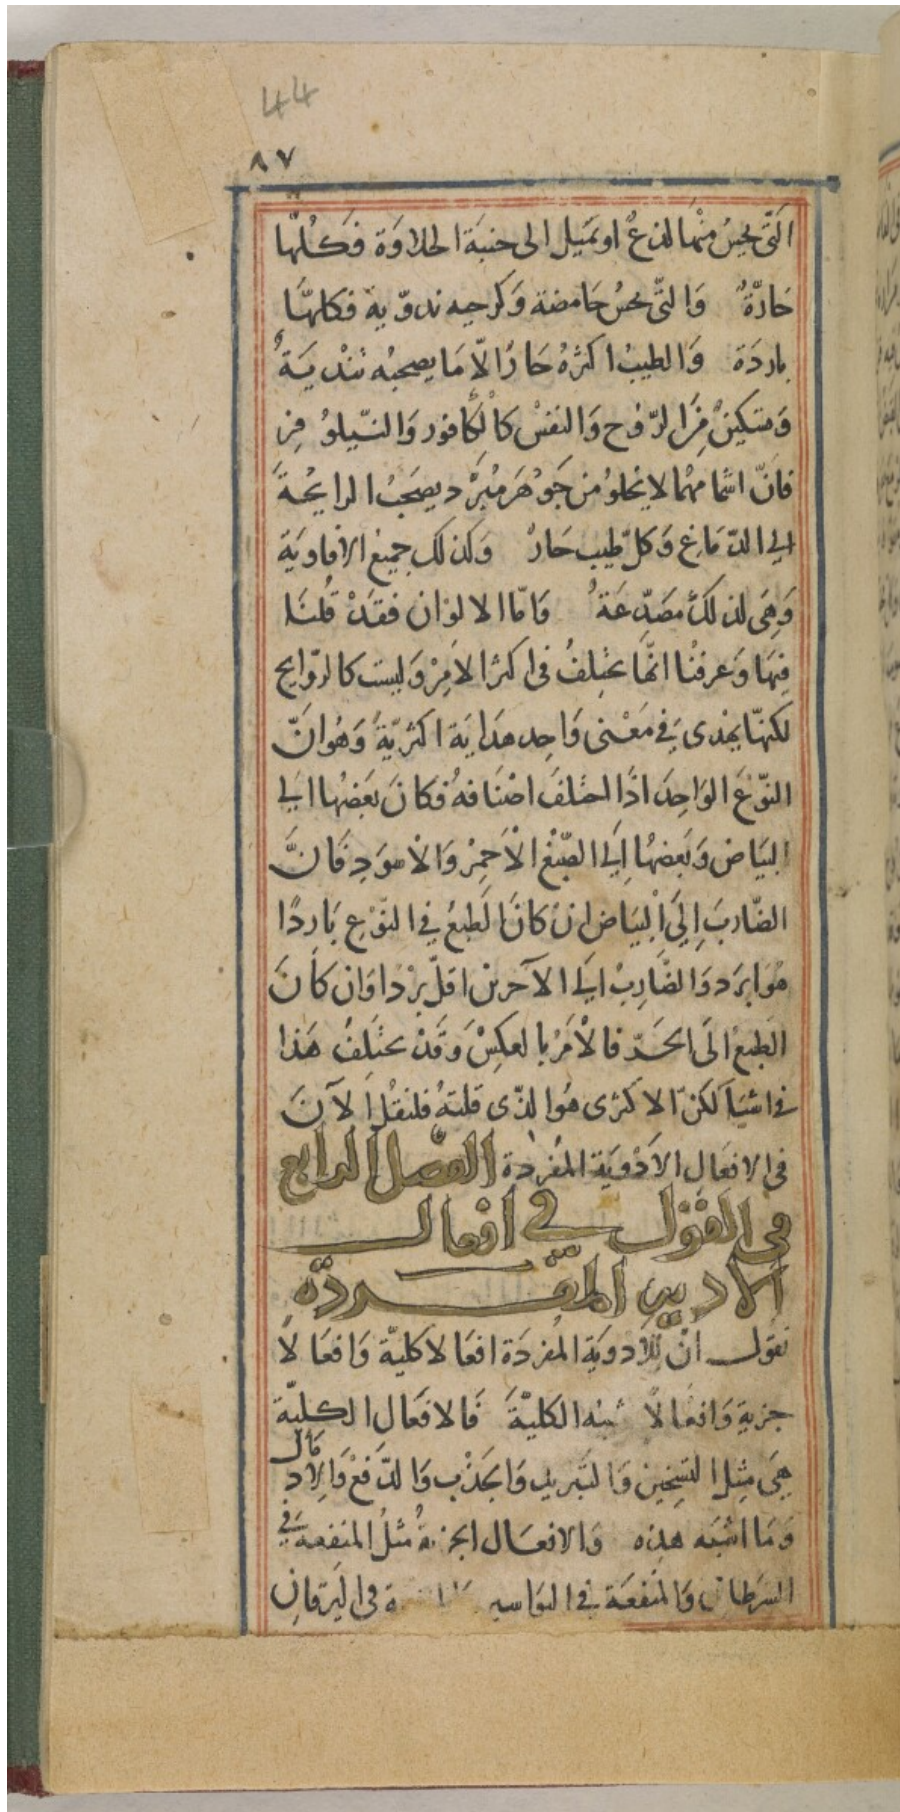 44
٨٧
الَّتى يحسُ منْها لذعٌ او تميل الى جنبَة الحلاوَة فكلّها
حَارّةٌ وَالتّى يحسُ حَامضة وَكرجيه ندوّية فكلهَّا
باردَة وَالطيبُ اكثرهُ حَارً الاّ مَا يصحبُه تنْديَةٌ
وَتسكينٌ مِنَ الرّوُح وَالنفسْ كاْلكافور وَالنّيلوُفِر
فانّ اشمامهُما لا يخلوُ من جَوْهَر مُبرّد يصحَبُ الرايحُةَ
الى الدّمَاغِ وَكلّ طيب حَارٌ وَكذلك جميع الافاويَة
وَهِىَ لذلكَ مصَدّعَةٌ وَامّا الالوْان فقَدْ قُلنَا
فيهَا وَعرفْنا انَّها يختِلفُ فى اكثر الاَمِرْ وَليست كالروّايح
لكنهّا يهْدى فى مَعْنى وَاحِد هدَايَة اكثريّةً وَهُوانَّ
النوّعَ الوَاحِدَ اذَا اختلفَ اصْنَافهُ فكانَ بَعَضُها الى
البيَاض وَبَعضهُا اِلى الصّبْغْ الْاَحِمرْ وَالْاسوَدِ فَانَّ
الضّاربَ اِلىَ اْلبيَاض ان كانَ الَطبعُ فى النّوْعِ بَاردًا
هُوَ ابرَد وَالضَّارِبْ الى الآخرين اقلّ بَرْدا وَان كاَنَ
الَطبعْ الَى الحَرّ فالْاَمرُ بالعكِسْ وَقَدْ يختِلَفُ هَذا
فى اشيَآ لكنّ الاكثرى هُوَ الذّى قلتهُ فلنقلْ الآنَ
فى الافعَال الاَدْويَة المفُردَة الفصل الرابع
فى القوْل فى افعال
الادوية المفردّة
نقول انّ للادويَة المفردَة افعَالا كليّة وَافعَالاً
جزيةِ وَافعَالاً تشبه الكليّةَ فَالافعَال الكليّة
هِىَ مِثل التسخين وَالتبريد وَالجَذْب وَالدَفعْ وَالاِدمَال
وَمَا اشبَه هذِه وَالافعَال الجزئيةُ مثلُ المنفعة فى
السَرطان وَالمنفعَة فى البوَاسير فى اليَرقانِ